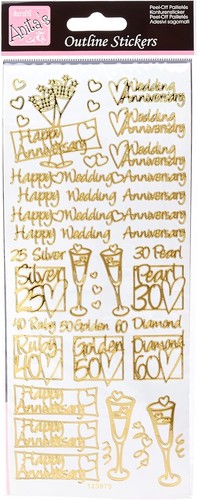 Anita's
Outline Stickers
Peel-Off Pailletés
Konturensticker
Peel-Off Pailletés
Adesivi sagomati
Wedding
Anniversary
Happy
Anniversary
Wedding
Anniversary
Happy Wedding Anniversary
Happy Wedding Anniversary
Happy Wedding Anniversary
25 Silver
30 Pearl
Silver
25
Pearl
30
40 Ruby
50 Golden
60 Diamond
Ruby
40
Golden
50
Diamond
60
Happy
Anniversary
Happy
Anniversary
Happy
Anniversary